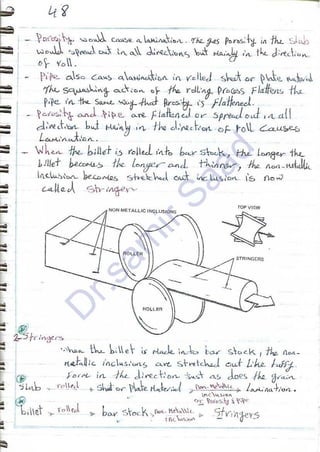 48
- Porosity would cause a lamination. The gas Porosity in the slab
would spread out in all directions, but Mainly in the direction
of roll.
- Pipe also caus a lamination in rolled sheet or plate material
The squashing action of the rolling Process Flattens the
Pipe in the same way that Prosity is Flattened.
- Porosity and Pipe are Flattened or spread out in all
direction but Mainly in the direction of roll causes
Lamination.
- When the billet is rolled into bar stock, the longer the
billet becomes the longer and thinner, the non-metallic
Inclusion becomes stretched out inclusion is now
called Stringer
NON METALLIC INCLUSIONS
TOP VIEW
ROLLER
STRINGERS
ROLLER
Dr. Samir Saad
2-Stringers
when the billet is Made into bar stock, the non-
metallic inclusions are stretched out like
Form in the direction Just as does the grain
Slab rolled sheet or Plate Material Non-Metallic Lamination.
inclusion
or Porosity & Pipe
billet rolled bar stock, non Metallic Stringers
inclusion